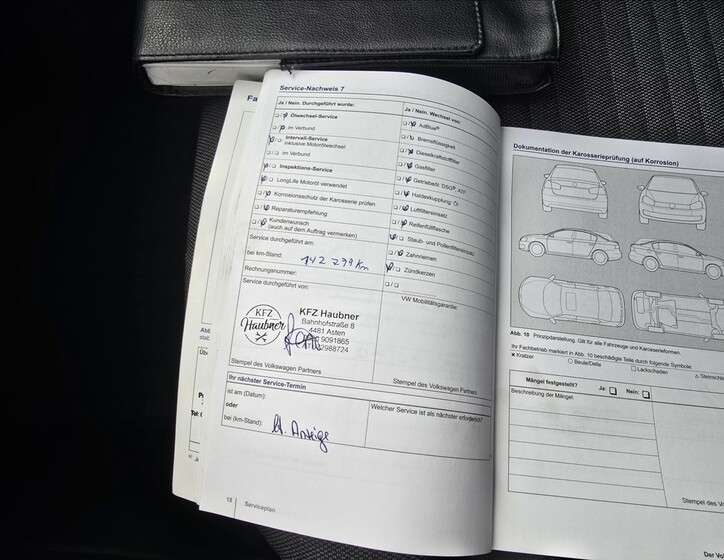 Service-Nachweis 7
Ja / Nein. Durchgeführt wurde:
Ölwechsel-Service
im Verbund
Intervall-Service
inklusive Motorölwechsel
im Verbund
Inspektions-Service
LongLife Motoröl verwendet
Korrosionsschutz der Karosserie prüfen
Reparaturempfehlung
Kundenwunsch
(auch auf dem Auftrag vermerken)
Service durchgeführt am:
bei km-Stand: 142 799 km
Rechnungsnummer:
Service durchgeführt von:
KFZ
Haubner
KFZ Haubner
Bahnhofstraße 8
4481 Asten
9091865
2988724
Stempel des Volkswagen Partners
Ja / Nein. Wechsel von:
AdBlue®
Bremsflüssigkeit
Dieselkraftstofffilter
Gasfilter
Getriebeöl, DSG®, ATF
Haldexkupplung Öl
Luftfiltereinsatz
Reifenfüllflasche
Staub- und Pollenfiltereinsatz
Zahnriemen
Zündkerzen
VW Mobilitätsgarantie:
Stempel des Volkswagen Partners
Ihr nächster Service-Termin
ist am (Datum):
oder
bei (km-Stand): lt. Anzeige
Welcher Service ist als nächster erforderlich?
18
Serviceplan
Dokumentation der Karosserieprüfung (auf Korrosion)
Abb. 10 Prinzipdarstellung. Gilt für alle Fahrzeuge und Karosserieformen.
Ihr Fachbetrieb markiert in Abb. 10 beschädigte Teile durch folgende Symbole:
× Kratzer
○ Beule/Delle
□ Lackschaden
Mängel festgestellt?
Ja:
Nein:
Beschreibung der Mängel
Stempel des